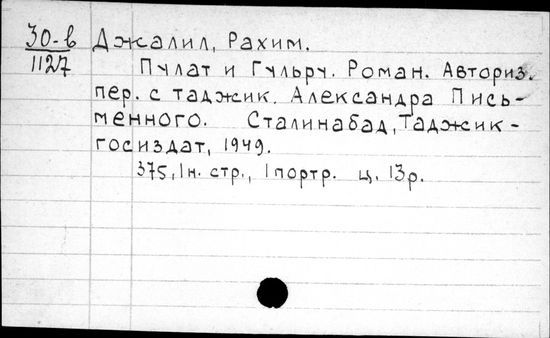 30-в Джалил, Рахим.
1127 Пулат и Гульру. Роман. Авториз.
пер. с таджик. Александра Пись-
менного. Сталинабад, Таджик-
госиздат, 1949.
375, 1 н. стр., 1 портр. ц. 13 р.